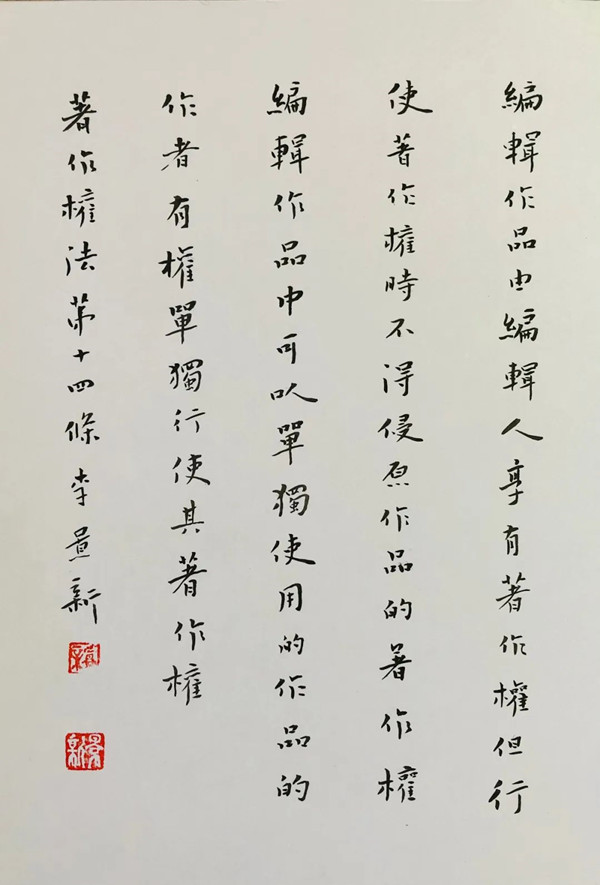 編輯作品由編輯人享有著作權但行
使著作權時不得侵原作品的著作權
編輯作品中可以單獨使用的作品的
作者有權單獨行使其著作權
著作權法第十四條李景新
景新
景新